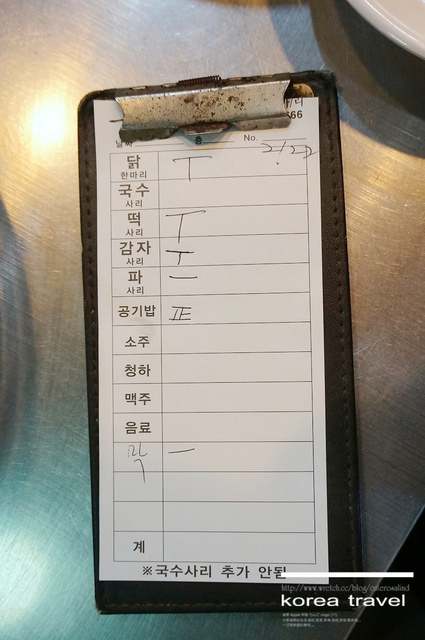 리
66
날짜 No. 2/22
닭 한마리 T
국수 사리
떡 사리 T
감자 사리 T
파 사리 一
공기밥 正
소주
청하
맥주
음료
막 一
계
※국수사리 추가 안됨
korea travel